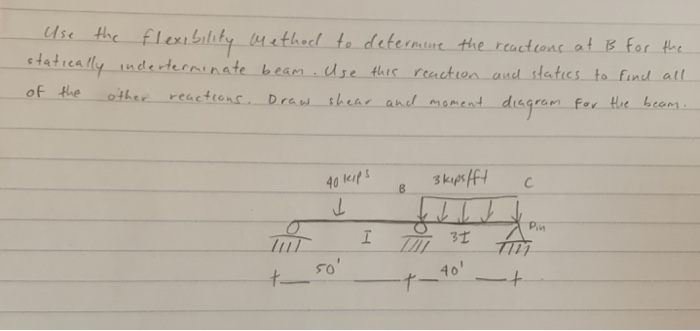 Use the flexibility method to determine the reactions at B for the
statically indeterminate beam. Use this reaction and statics to find all
of the other reactions. Draw shear and moment diagram for the beam.
40 kips
B
3 kips/ft
C
Pin
I
3I
50'
40'